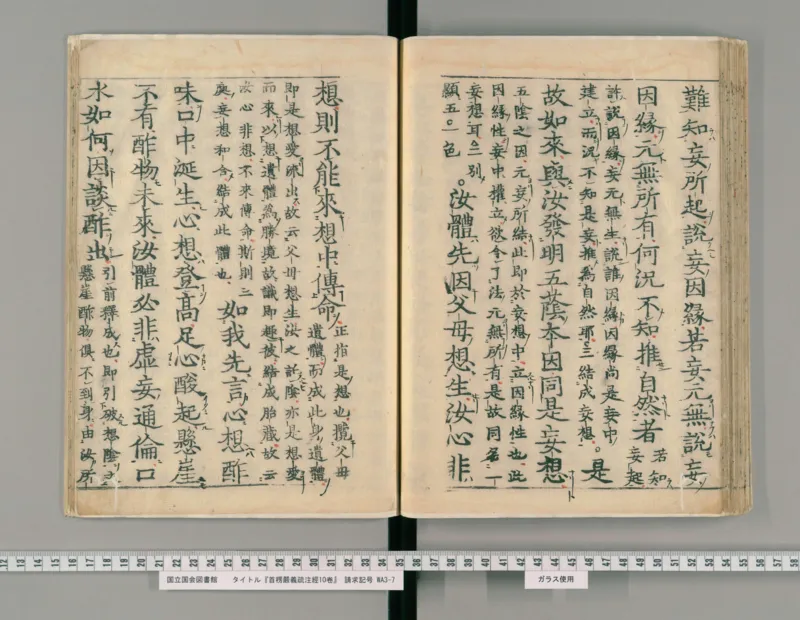 難知妄所起說妄因緣若妄元無說妄
因緣元無所有何況不知推自然者
若知
妄起
許說因緣妄元無生說誰因緣因緣尚是妄中
建立而況不知是妄推為自然耶三結成妄想。
是
故如來與汝發明五蔭本因同是妄想
五陰之因元妄所結此即於妄想中立因緣性也此
因緣性妄中權立欲令了法元無所有是故同名一
妄想耳△三別
顯五〇一色
。汝體先因父母想生汝心非
想則不能來想中傳命
正指是想也攬父母
遺體而成此身遺體
即是想愛所出故云父母想生汝之託陰亦是想愛
而來以想遺體為勝境故識即趣彼結成胎藏故云
汝心非想不來傳命斯則三
處妄想和合結成此體也
如我先言心想酢
味口中涎生心想登高足心酸起懸崖
不有酢物未來汝體必非虛妄通倫口
水如何因談酢出
引前釋成也即引破想陰之
懸崖酢物俱不到身由汝所
12 13 14 15 16 17 18 19 20 21 22 23 24 25 26 27 28 29 30 31 32 33 34 35 36 37 38 39 40 41 42 43 44 45 46 47 48 49 50 51 52 53 54 55 56 57 58
国立国会図書館 タイトル『首楞嚴義疏注經10巻』 請求記号 WA3-7
ガラス使用